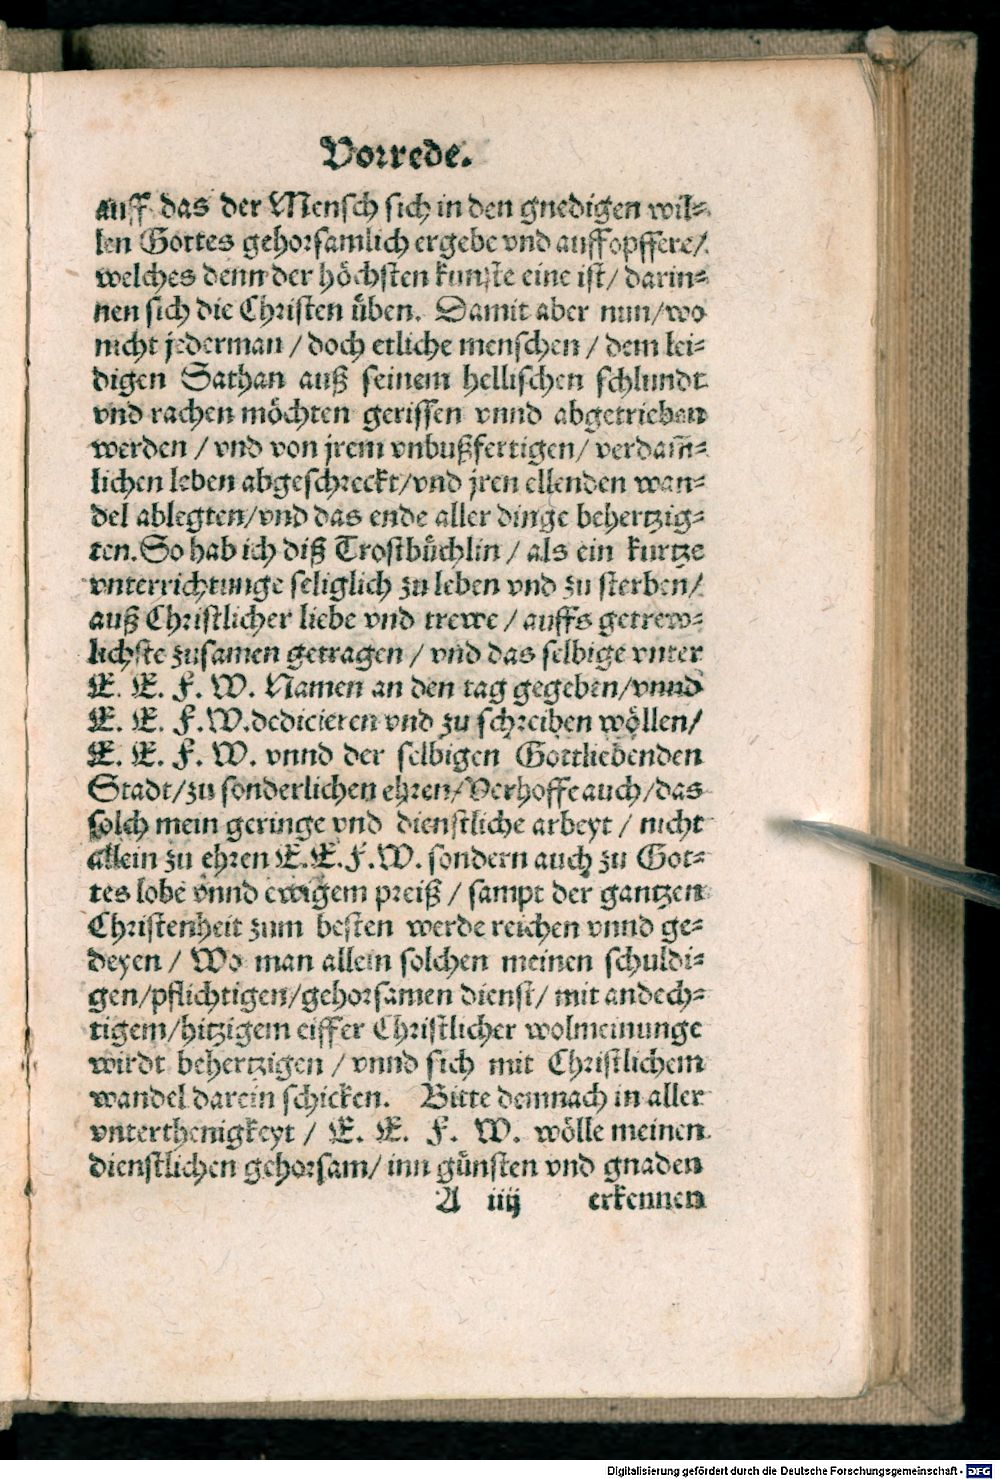 Vorrede.
auff das der Mensch sich in den gnedigen wil⸗
len Gottes gehorsamlich ergebe vnd auffopffere/
welches denn der höchsten kunste eine ist/ darin⸗
nen sich die Christen üben. Damit aber nun/wo
nicht jederman / doch etliche menschen / dem lei⸗
digen Sathan auß seinem hellischen schlundt
vnd rachen möchten gerissen vnnd abgetrieben
werden / vnd von jrem vnbußfertigen/ verdam̃⸗
lichen leben abgeschreckt/vnd jren ellenden wan⸗
del ablegten/vnd das ende aller dinge behertzig⸗
ten. So hab ich diß Trostbüchlin / als ein kurtze
vnterrichtunge seliglich zu leben vnd zu sterben/
auß Christlicher liebe vnd trewe / auffs getrew⸗
lichste zusamen getragen / vnd das selbige vnter
E. E. F. W. Namen an den tag gegeben/vnnd
E. E. F. W. dedicieren vnd zu schreiben wöllen/
E. E. F. W. vnnd der selbigen Gottliebenden
Stadt/zu sonderlichen ehren/Verhoffe auch/das
solch mein geringe vnd dienstliche arbeyt / nicht
allein zu ehren E. E. F. W. sondern auch zu Got⸗
tes lobe vnnd ewigem preiß / sampt der gantzen
Christenheit zum besten werde reichen vnnd ge⸗
deyen / Wo man allein solchen meinen schuldi⸗
gen/pflichtigen/gehorsamen dienst/ mit andech⸗
tigem/hitzigem eiffer Christlicher wolmeinunge
wirdt behertzigen / vnnd sich mit Christlichem
wandel darein schicken. Bitte demnach in aller
vnterthenigkeyt / E. E. F. W. wölle meinen
dienstlichen gehorsam/ inn günsten vnd gnaden
A iiij erkennen
Digitalisierung gefördert durch die Deutsche Forschungsgemeinschaft - DFG